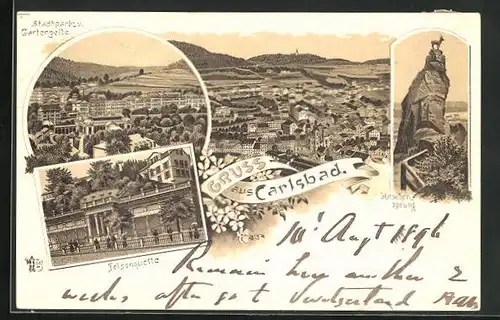 Stadtpark u.
Gartenzeile
GRUSS
aus Carlsbad.
Hirschen-
sprung
Felsenquelle
10' Augt 1896
Remain here another 2
weeks after go to Switzerland